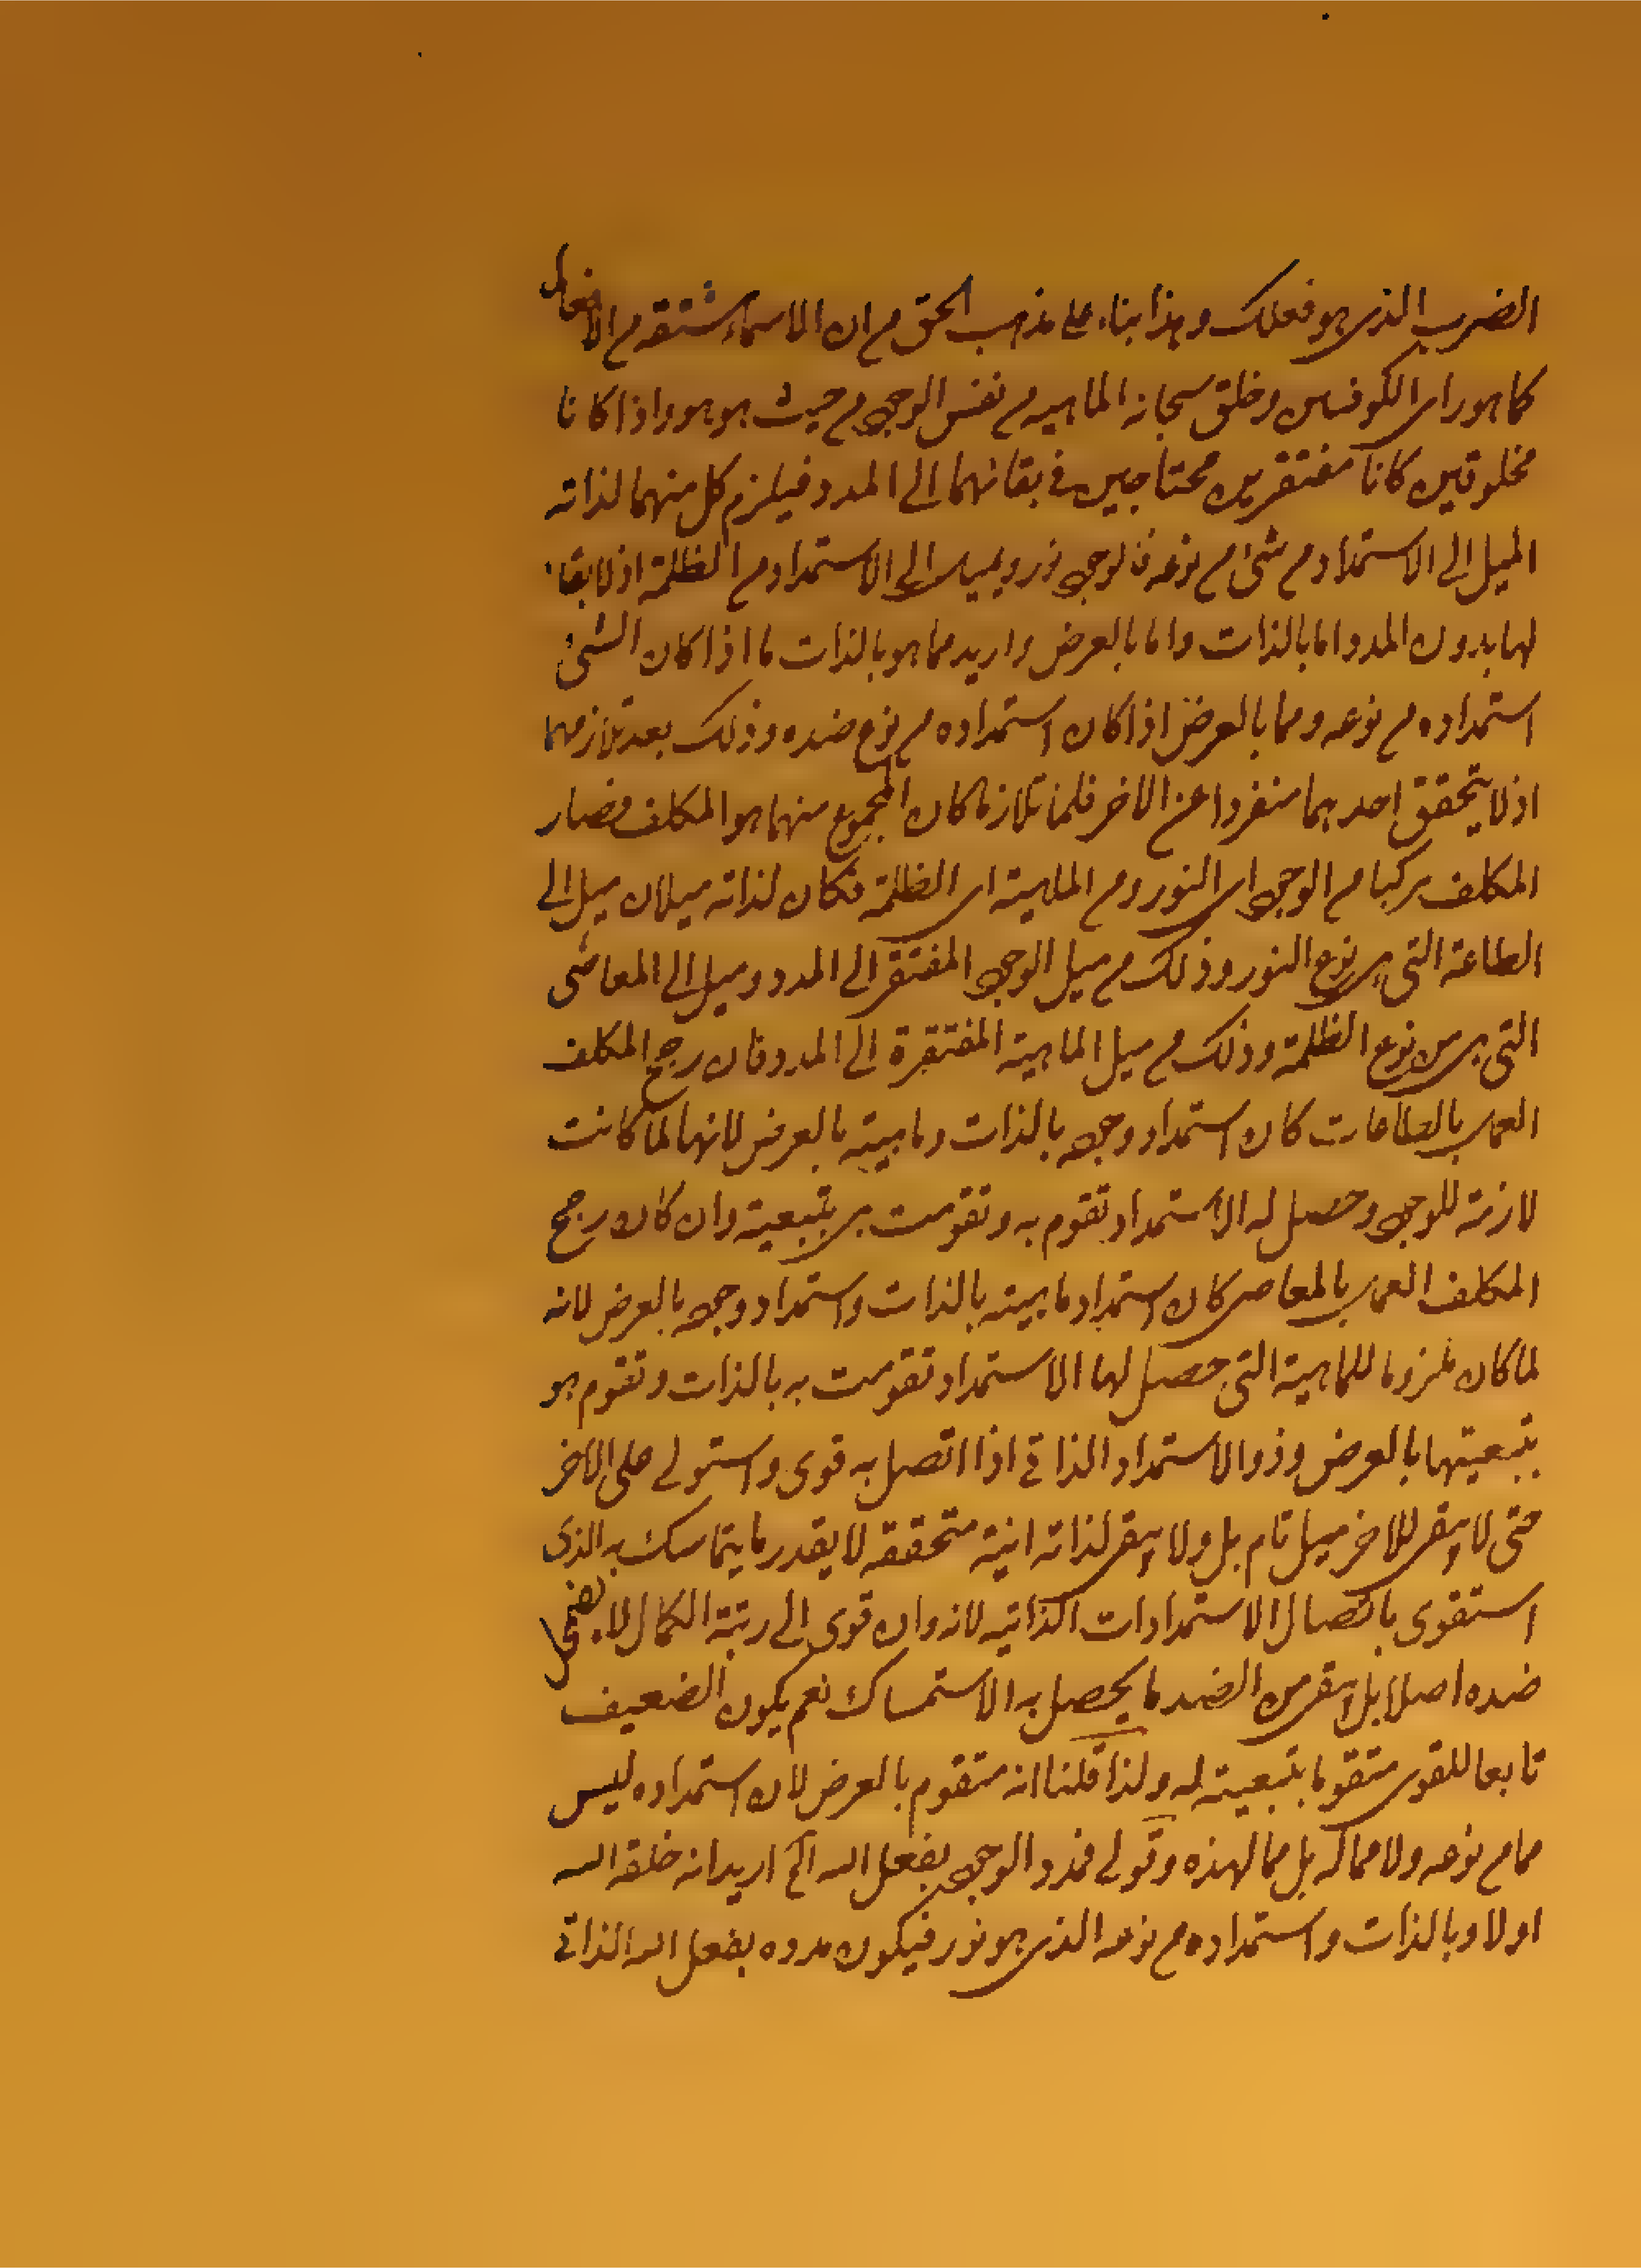 الضرب الذى هو فعلك وهذا بناء على مذهب الحق من ان الاسماء مشتقة من الافعال
كما هو راى الكوفيين وخلق سبحانه الماهيه من نفس الوجود من حيث هو هو واذا كانا
مخلوقين كانا مفتقرين محتاجين فى بقائهما الى المدد فيلزم كل منهما لذاته
الميل الى الاستمداد من شئ من نوعه فالوجود نور ويميل الى الاستمداد من الظلمة اذ لا بقاء
لها بدون المدد اما بالذات واما بالعرض واريد مما هو بالذات ما اذا كان الشئ
استمداده من نوعه ومما بالعرض اذا كان استمداده من نوع ضده وذلك بعد تلازمهما
اذ لا يتحقق احدهما منفردا عن الاخر فلما تلازما كان المجموع منهما هو المكلف فصار
المكلف مركبا من الوجود اى النور ومن الماهية اى الظلمة فكان لذاته ميلان ميل الى
الطاعة التى هى نوع النور وذلك من ميل الوجود المفتقر الى المدد وميل الى المعاصى
التى هى من نوع الظلمة وذلك من ميل الماهية المفتقرة الى المدد فان رجح المكلف
العمل بالطاعات كان استمداد وجوده بالذات وماهيته بالعرض لانها لما كانت
لازمة للوجود وحصل له الاستمداد تقوم به وتقومت هى بتبعية وان كان رجح
المكلف العمل بالمعاصى كان استمداد ماهيته بالذات واستمداد وجوده بالعرض لانه
لما كان ملزوما للماهية التى حصل لها الاستمداد تقومت به بالذات وتقوم هو
بتبعيتها بالعرض وذو الاستمداد الذاتى اذا اتصل به قوى واستولى على الاخر
حتى لا يبقى للاخر ميل تام بل ولا يبقى لذاته انية متحققة لا بقدر ما يتماسك به الذى
استقوى باتصال الاستمدادات الذاتيه لانه وان قوى الى رتبة الكمال لا يضمحل
ضده اصلا بل يبقى من الضد ما يحصل به الاستمساك نعم يكون الضعيف
تابعا للقوى متقوما بتبعية له ولذا قلنا انه متقوم بالعرض لان استمداده ليس
مما من نوعه ولا مما له بل مما لهذه وقولى فمدد الوجود بفعل الله الخ اريد انه خلقه الله
اولا وبالذات واستمداده من نوعه الذى هو نور فيكون مدده بفعل الله الذاتى